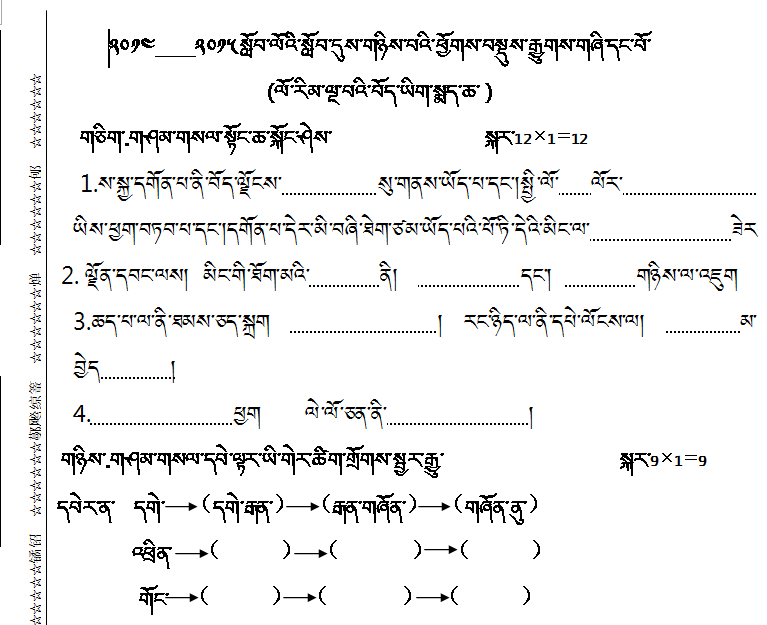 ༢༠༡༤____༢༠༡༥སློབ་ལོའི་སློབ་དུས་གཉིས་པའི་ཕྱོགས་བསྡུས་རྒྱུགས་གཞི་དང་པོ་
(ལོ་རིམ་ལྔ་བའི་བོད་ཡིག་སྨད་ཆ་ )
གཅིག .གཤམ་གསལ་སྟོང་ཆ་སྐོང་ཤེས་ སྐར་12×1=12
1.ས་སྐྱ་དགོན་པ་ནི་བོད་ལྗོངས་....................སུ་གནས་ཡོད་པ་དང་།སྤྱི་ལོ་.......ལོར་............................
ཡིས་ཕྱག་བཏབ་པ་དང་།དགོན་པ་དེར་མི་བཞི་ཐེག་ཙམ་ཡོད་པའི་པོ་ཏི་དེའི་མིང་ལ་..............................ཟེར
2. ལྗོན་དབང་ལས། མིང་གི་ཐོག་མའི་...............ནི། ......................དང་། ...............གཉིས་ལ་འཇུག
3.ཆད་པ་ལ་ནི་ཐམས་ཅད་སྐྲག ...............................། རང་ཉིད་ལ་ནི་དཔེ་ལོངས་ལ། ................མ་
བྱེད...............།
4...............................ཕྱག ལེ་ལོ་ཅན་ནི་..............................།
གཉིས་ .གཤམ་གསལ་དཔེ་ལྟར་ཡི་གེར་ཚིག་གྲོགས་སྦྱར་རྒྱུ་ སྐར་9×1=9
དཔེར་ན་ དགེ་→(དགེ་རྒན་)→(རྒན་གཞོན་)→(གཞོན་ནུ་)
འཕྲིན་→( )→( )→( )
གོང་→( )→( )→( )